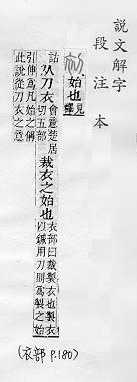 說文解字
段注本
始也見釋
詁从刀衣會意楚居切五部裁衣之始也衣部曰裁製衣也製衣以鍼用刀則為製之始
引伸為凡始之稱
此說從刀衣之意
(衣部 P.180)